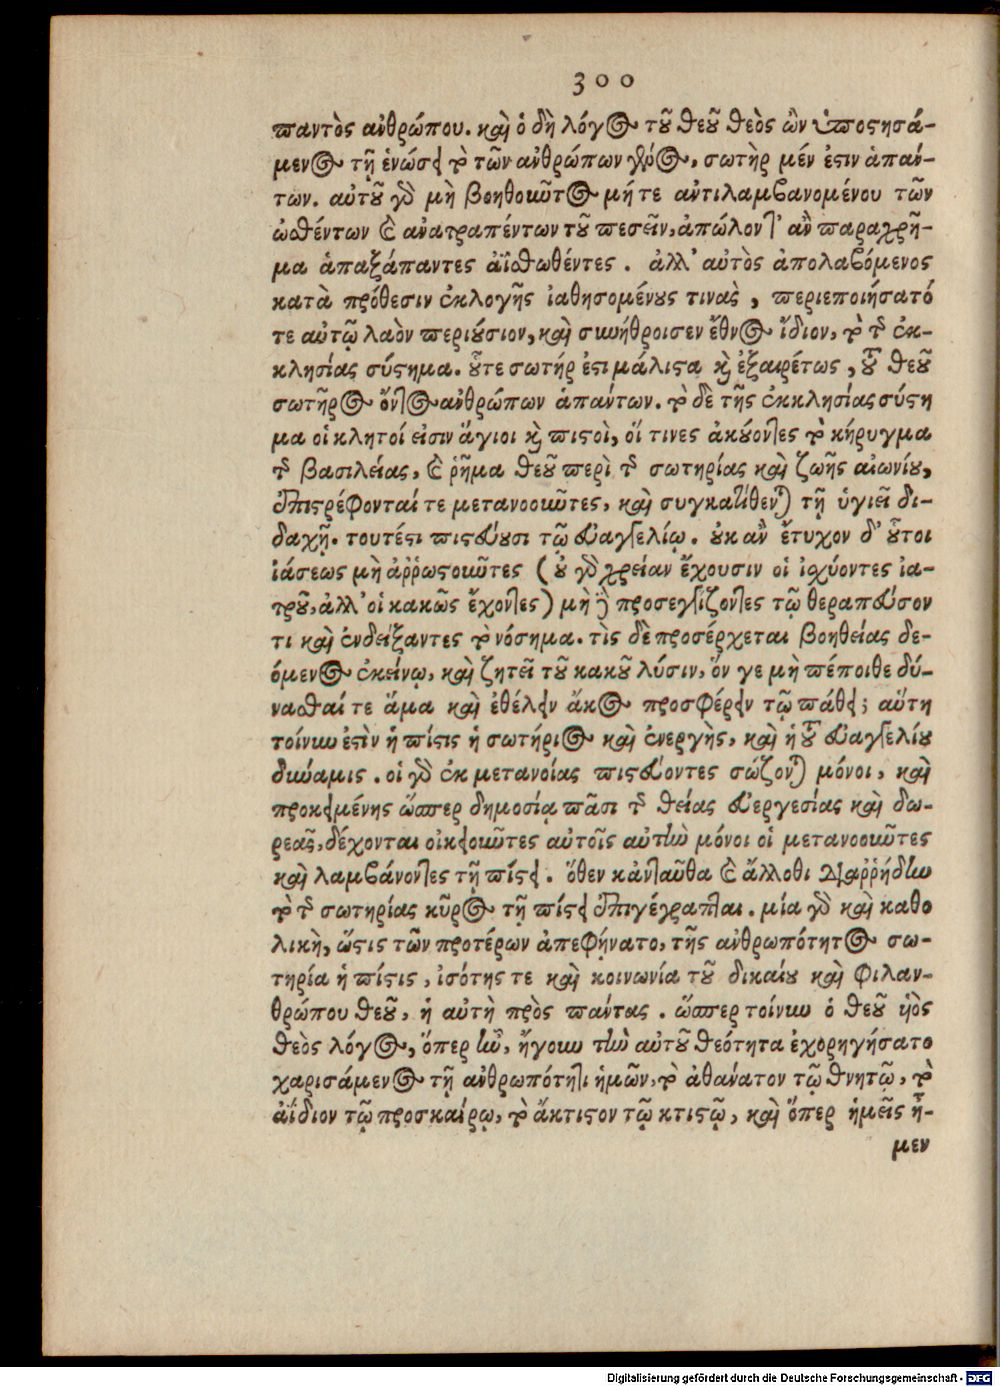 300
παντὸς ἀνθρώπου. καὶ ὁ δὴ λόγος τοῦ θεοῦ θεὸς ὢν ὑποστησά-
μενος τῇ ἑνώσει τὸ τῶν ἀνθρώπων γένος, σωτὴρ μέν ἐστιν ἁπάν-
των. αὐτοῦ γὰρ μὴ βοηθοιῶτος μήτε ἀντιλαμβανομένου τῶν
ὠσθέντων καὶ ἀνατραπέντων τοῦ πεσεῖν, ἀπώλοντ' ἂν παραχρῆ-
μα ἁπαξάπαντες ἀϊσθωθέντες. ἀλλ' αὐτὸς ἀπολαβόμενος
κατὰ πρόθεσιν ἐκλογῆς ἰαθησομένους τινὰς, περιεποιήσατό
τε αὐτῷ λαὸν περιούσιον, καὶ συνήθροισεν ἔθνος ἴδιον, τὸ τῆς ἐκ-
κλησίας σύστημα. οὗτε σωτήρ ἐστι μάλιστα καὶ ἐξαιρέτως, τοῦ θεοῦ
σωτῆρος ὄντος ἀνθρώπων ἁπάντων. τὸ δὲ τῆς ἐκκλησίας σύστη
μα οἱ κλητοί εἰσιν ἅγιοι καὶ πιστοὶ, οἵ τινες ἀκούοντες τὸ κήρυγμα
τῆς βασιλείας, καὶ ῥῆμα θεοῦ περὶ τῆς σωτηρίας καὶ ζωῆς αἰωνίου,
ἐπιστρέφονταί τε μετανοοιῶτες, καὶ συγκατίθενται τῇ ὑγιεῖ δι-
δαχῇ. τουτέστι πιστεύουσι τῷ εὐαγγελίῳ. οὐκ ἂν ἔτυχον δ' οὗτοι
ἰάσεως μὴ ἀῤῥωστοιῶτες (οὐ γὰρ χρείαν ἔχουσιν οἱ ἰσχύοντες ἰα-
τροῦ, ἀλλ' οἱ κακῶς ἔχοντες) μὴ δὲ προσεγγίζοντες τῷ θεραπεύσον
τι καὶ ἐνδείξαντες τὸ νόσημα. τὶς δὲ προσέρχεται βοηθείας δε-
όμενος ἐκείνῳ, καὶ ζητεῖ τοῦ κακοῦ λύσιν, ὅν γε μὴ πέποιθε δύ-
νασθαί τε ἅμα καὶ ἐθέλειν ἄκος προσφέρειν τῷ πάθει; αὕτη
τοίνυν ἐστὶν ἡ πίστις ἡ σωτήριος καὶ ἐνεργὴς, καὶ ἡ τοῦ εὐαγγελίου
δύναμις. οἱ γὰρ ἐκ μετανοίας πιστεύοντες σώζονται μόνοι, καὶ
προκειμένης ὥσπερ δημοσίᾳ πᾶσι τῆς θείας εὐεργεσίας καὶ δω-
ρεᾶς, δέχονται οἰκειοιῶτες αὑτοῖς αὐτὴν μόνοι οἱ μετανοοιῶτες
καὶ λαμβάνοντες τῇ πίστει. ὅθεν κἀνταῦθα καὶ ἄλλοθι διαῤῥήδην
τὸ τῆς σωτηρίας κῦρος τῇ πίστει ἐπιγέγραπται. μία γὰρ καὶ καθο
λικὴ, ὥς τις τῶν προτέρων ἀπεφήνατο, τῆς ἀνθρωπότητος σω-
τηρία ἡ πίστις, ἰσότης τε καὶ κοινωνία τοῦ δικαίου καὶ φιλαν-
θρώπου θεοῦ, ἡ αὐτὴ πρὸς πάντας. ὥσπερ τοίνυν ὁ θεοῦ υἱὸς
θεὸς λόγος, ὅπερ ἦν, ἤγουν τὴν αὐτοῦ θεότητα ἐχορηγήσατο
χαρισάμενος τῇ ἀνθρωπότητι ἡμῶν, τὸ ἀθάνατον τῷ θνητῷ, τὸ
ἀΐδιον τῷ προσκαίρῳ, τὸ ἄκτιστον τῷ κτιστῷ, καὶ ὅπερ ἡμεῖς ἦ-
μεν
Digitalisierung gefördert durch die Deutsche Forschungsgemeinschaft - DFG